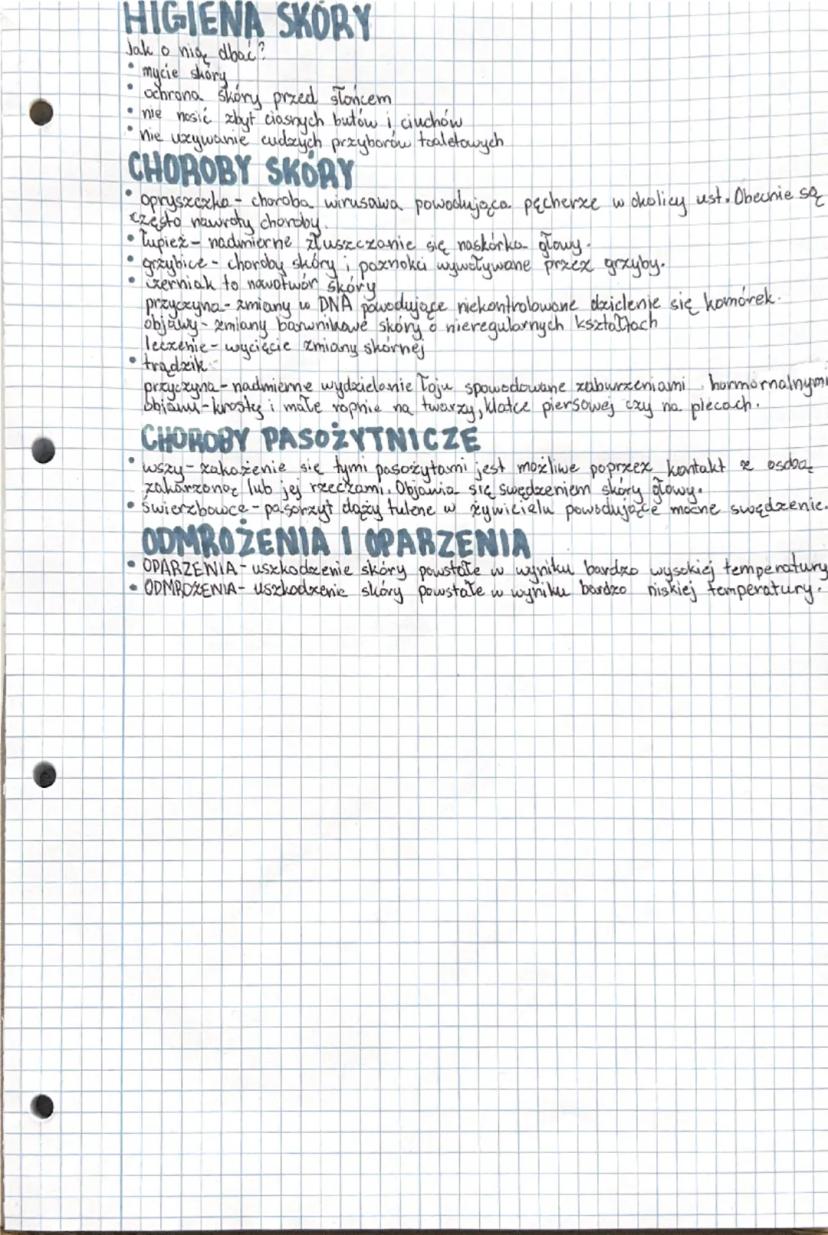 HIGIENA SKÓRY
Jak o nią dbać?
• mycie skóry
• ochrona skóry przed słońcem
• nie nosić zbyt ciasnych butów i ciuchów
• nie używanie cudzych przyborów toaletowych
CHOROBY SKÓRY
• opryszczka - choroba wirusawa powodująca pęcherze w okolicy ust. Obecnie są
często nawroty choroby.
• łupież - nadmierne złuszczanie się naskórka głowy.
• grzybice - choroby skóry i paznokci wywoływane przez grzyby.
• czerniak to nowotwór skóry
przyczyna - zmiany w DNA powodujące niekontrolowane dzielenie się komórek.
objawy - zmiany barwnikowe skóry o nieregularnych kształtach
leczenie - wycięcie zmiany skórnej
• trądzik
przyczyna - nadmierne wydzielanie łoju spowodowane zaburzeniami hormornalnymi
objawy - krosty i małe ropnie na twarzy, klatce piersowej czy na plecach.
CHOROBY PASOŻYTNICZE
• wszy - zakażenie się tymi pasożytami jest możliwe poprzez kontakt z osobą
zakarzoną lub jej rzeczami. Objawia się swędzeniem skóry głowy.
• świerzbowce - pasorzyt dąży tulene w żywicielu powodujące mocne swędzenie.
ODMROŻENIA I OPARZENIA
• OPARZENIA - uszkodzenie skóry powstałe w wyniku bardzo wysokiej temperatury
• ODMROŻENIA - uszkodzenie skóry powstałe w wyniku bardzo niskiej temperatury.